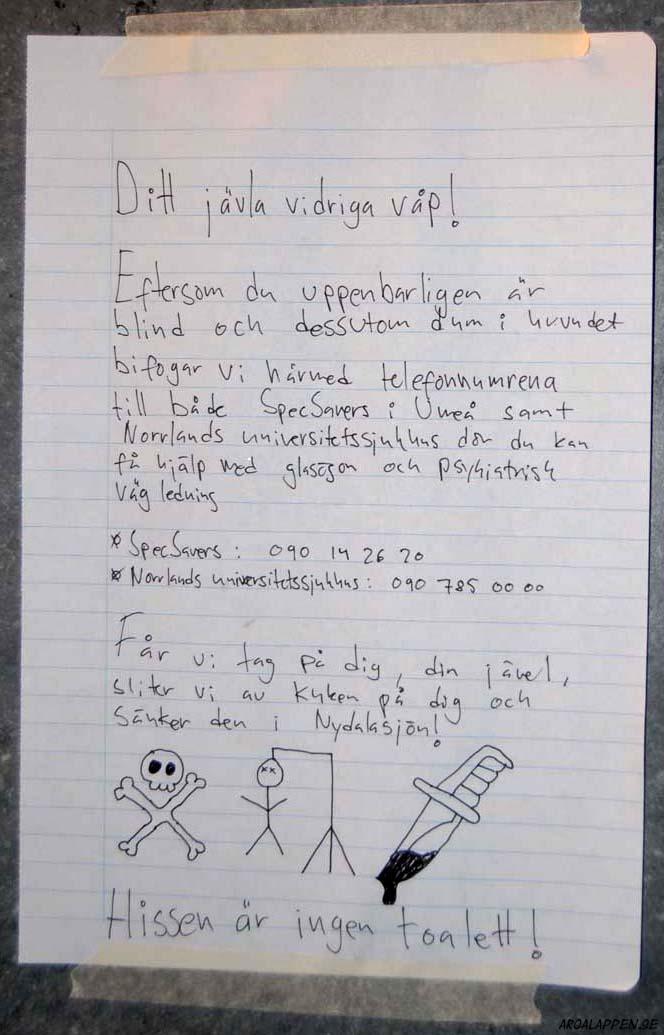 Ditt jävla vidriga våp!
Eftersom du uppenbarligen är
blind och dessutom dum i huvudet
bifogar vi härmed telefonnumrena
till både SpecSavers i Umeå samt
Norrlands universitetssjukhus där du kan
få hjälp med glasögon och psykiatrisk
vägledning
* SpecSavers: 090 14 26 20
* Norrlands universitetssjukhus: 090 785 00 00
Får vi tag på dig, din jävel,
sliter vi av kuken på dig och
sänker den i Nydalasjön!
Hissen är ingen toalett!
ARGALAPPEN.SE